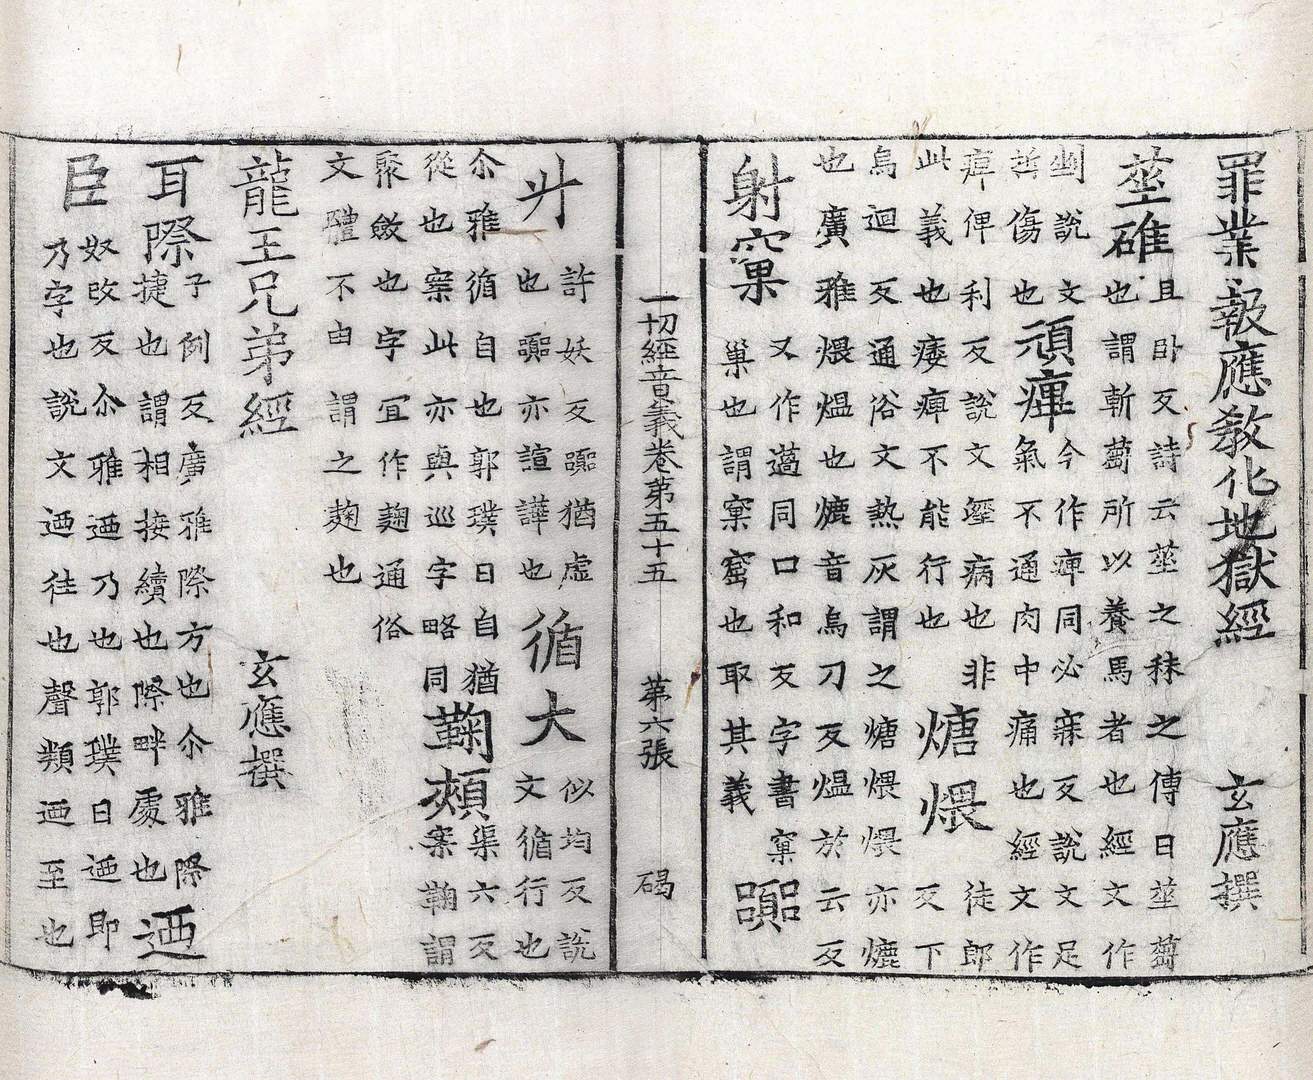 罪業報應敎化地獄經　玄應撰
莝碓　且卧反詩云莝之秣之傳曰莝蒭
也謂斬蒭所以養馬者也經文作
剉說文
哲傷也
頑痺　今作痺同必寐反說文足
氣不通肉中痛也經文作
痺俾利反說文病也非
此義也痿痺不能行也
煻煨　徒郎
反下
烏迴反通俗文熱灰謂之煻煨煨亦熝
也廣雅煨熅也熝音烏刀反熅於云反
射窠　又作薖同口和反字書窠
巢也謂窠窟也取其義
嚻
一切經音義卷第五十五　第六張　碣
升　許妖反嚻猶虛
也嚻亦諠譁也
循大　似均反說
文循行也
尒雅循自也郭璞曰自猶
從也案此亦與巡字略同
鞠頰　渠六反
案鞠謂
聚斂也字冝作麹通俗
文體不由謂之麹也
龍王兄弟經　玄應撰
耳際　子例反廣雅際方也尒雅際
捷也謂相接續也際畔處也
迺
臣　奴改反尒雅迺乃也郭璞曰迺即
乃字也說文迺往也聲類迺至也